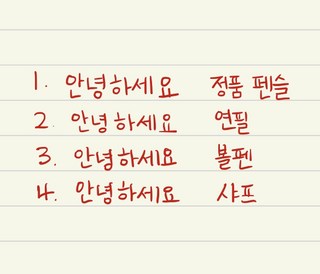 1. 안녕하세요 정품 펜슬
2. 안녕하세요 연필
3. 안녕하세요 볼펜
4. 안녕하세요 샤프